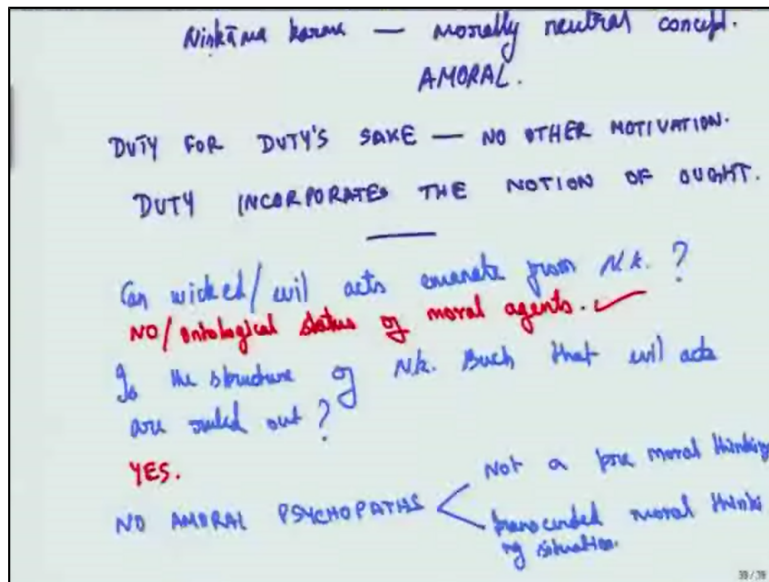 Niṣkāma karma — morally neutral concept.
AMORAL.
DUTY FOR DUTY'S SAKE — NO OTHER MOTIVATION.
DUTY INCORPORATES THE NOTION OF OUGHT.
Can wicked/evil acts emanate from N.k.?
NO/ontological status of moral agents.
Is the structure of N.k. such that evil acts
are ruled out?
YES.
NO AMORAL PSYCHOPATHS
Not a pre moral thinking
transcended moral thinki
ng situation.
39/39